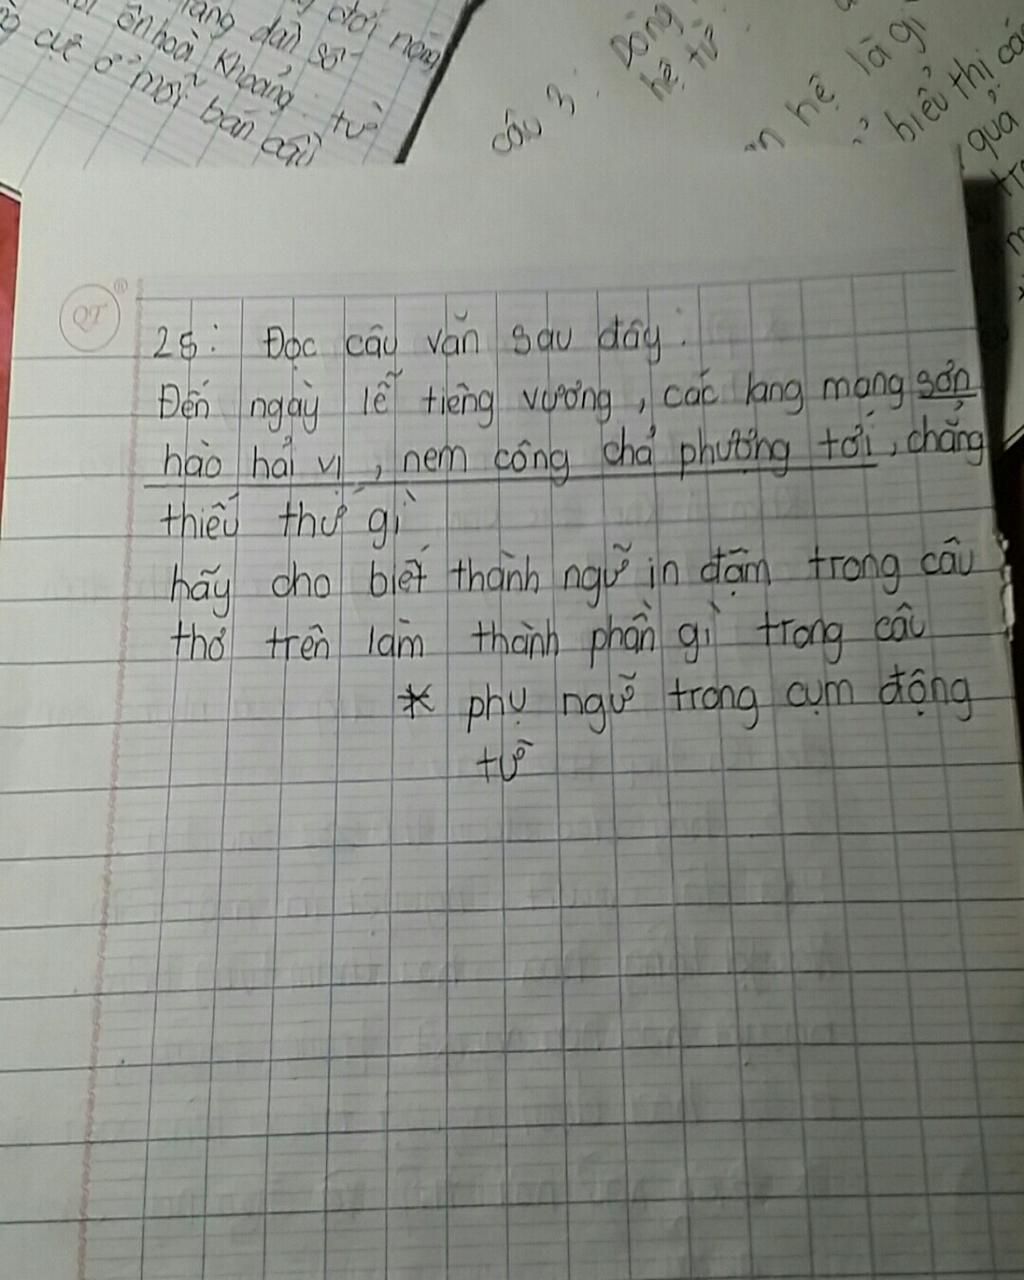 ràng dân số
đới nóng
ôn hoà khoảng từ
cực ở mỗi bán cầu
câu 3: Dòng
hệ từ
hệ là gì
biểu thị các
quả
QT
25: Đọc câu văn sau đây:
Đến ngày lễ tiêng vương, các lang mang sơn
hào hải vị, nem công chả phượng tới, chẳng
thiếu thứ gì
hãy cho biết thành ngữ in đậm trong câu
thơ trên làm thành phần gì trong câu
* phụ ngữ trong cụm động
từ